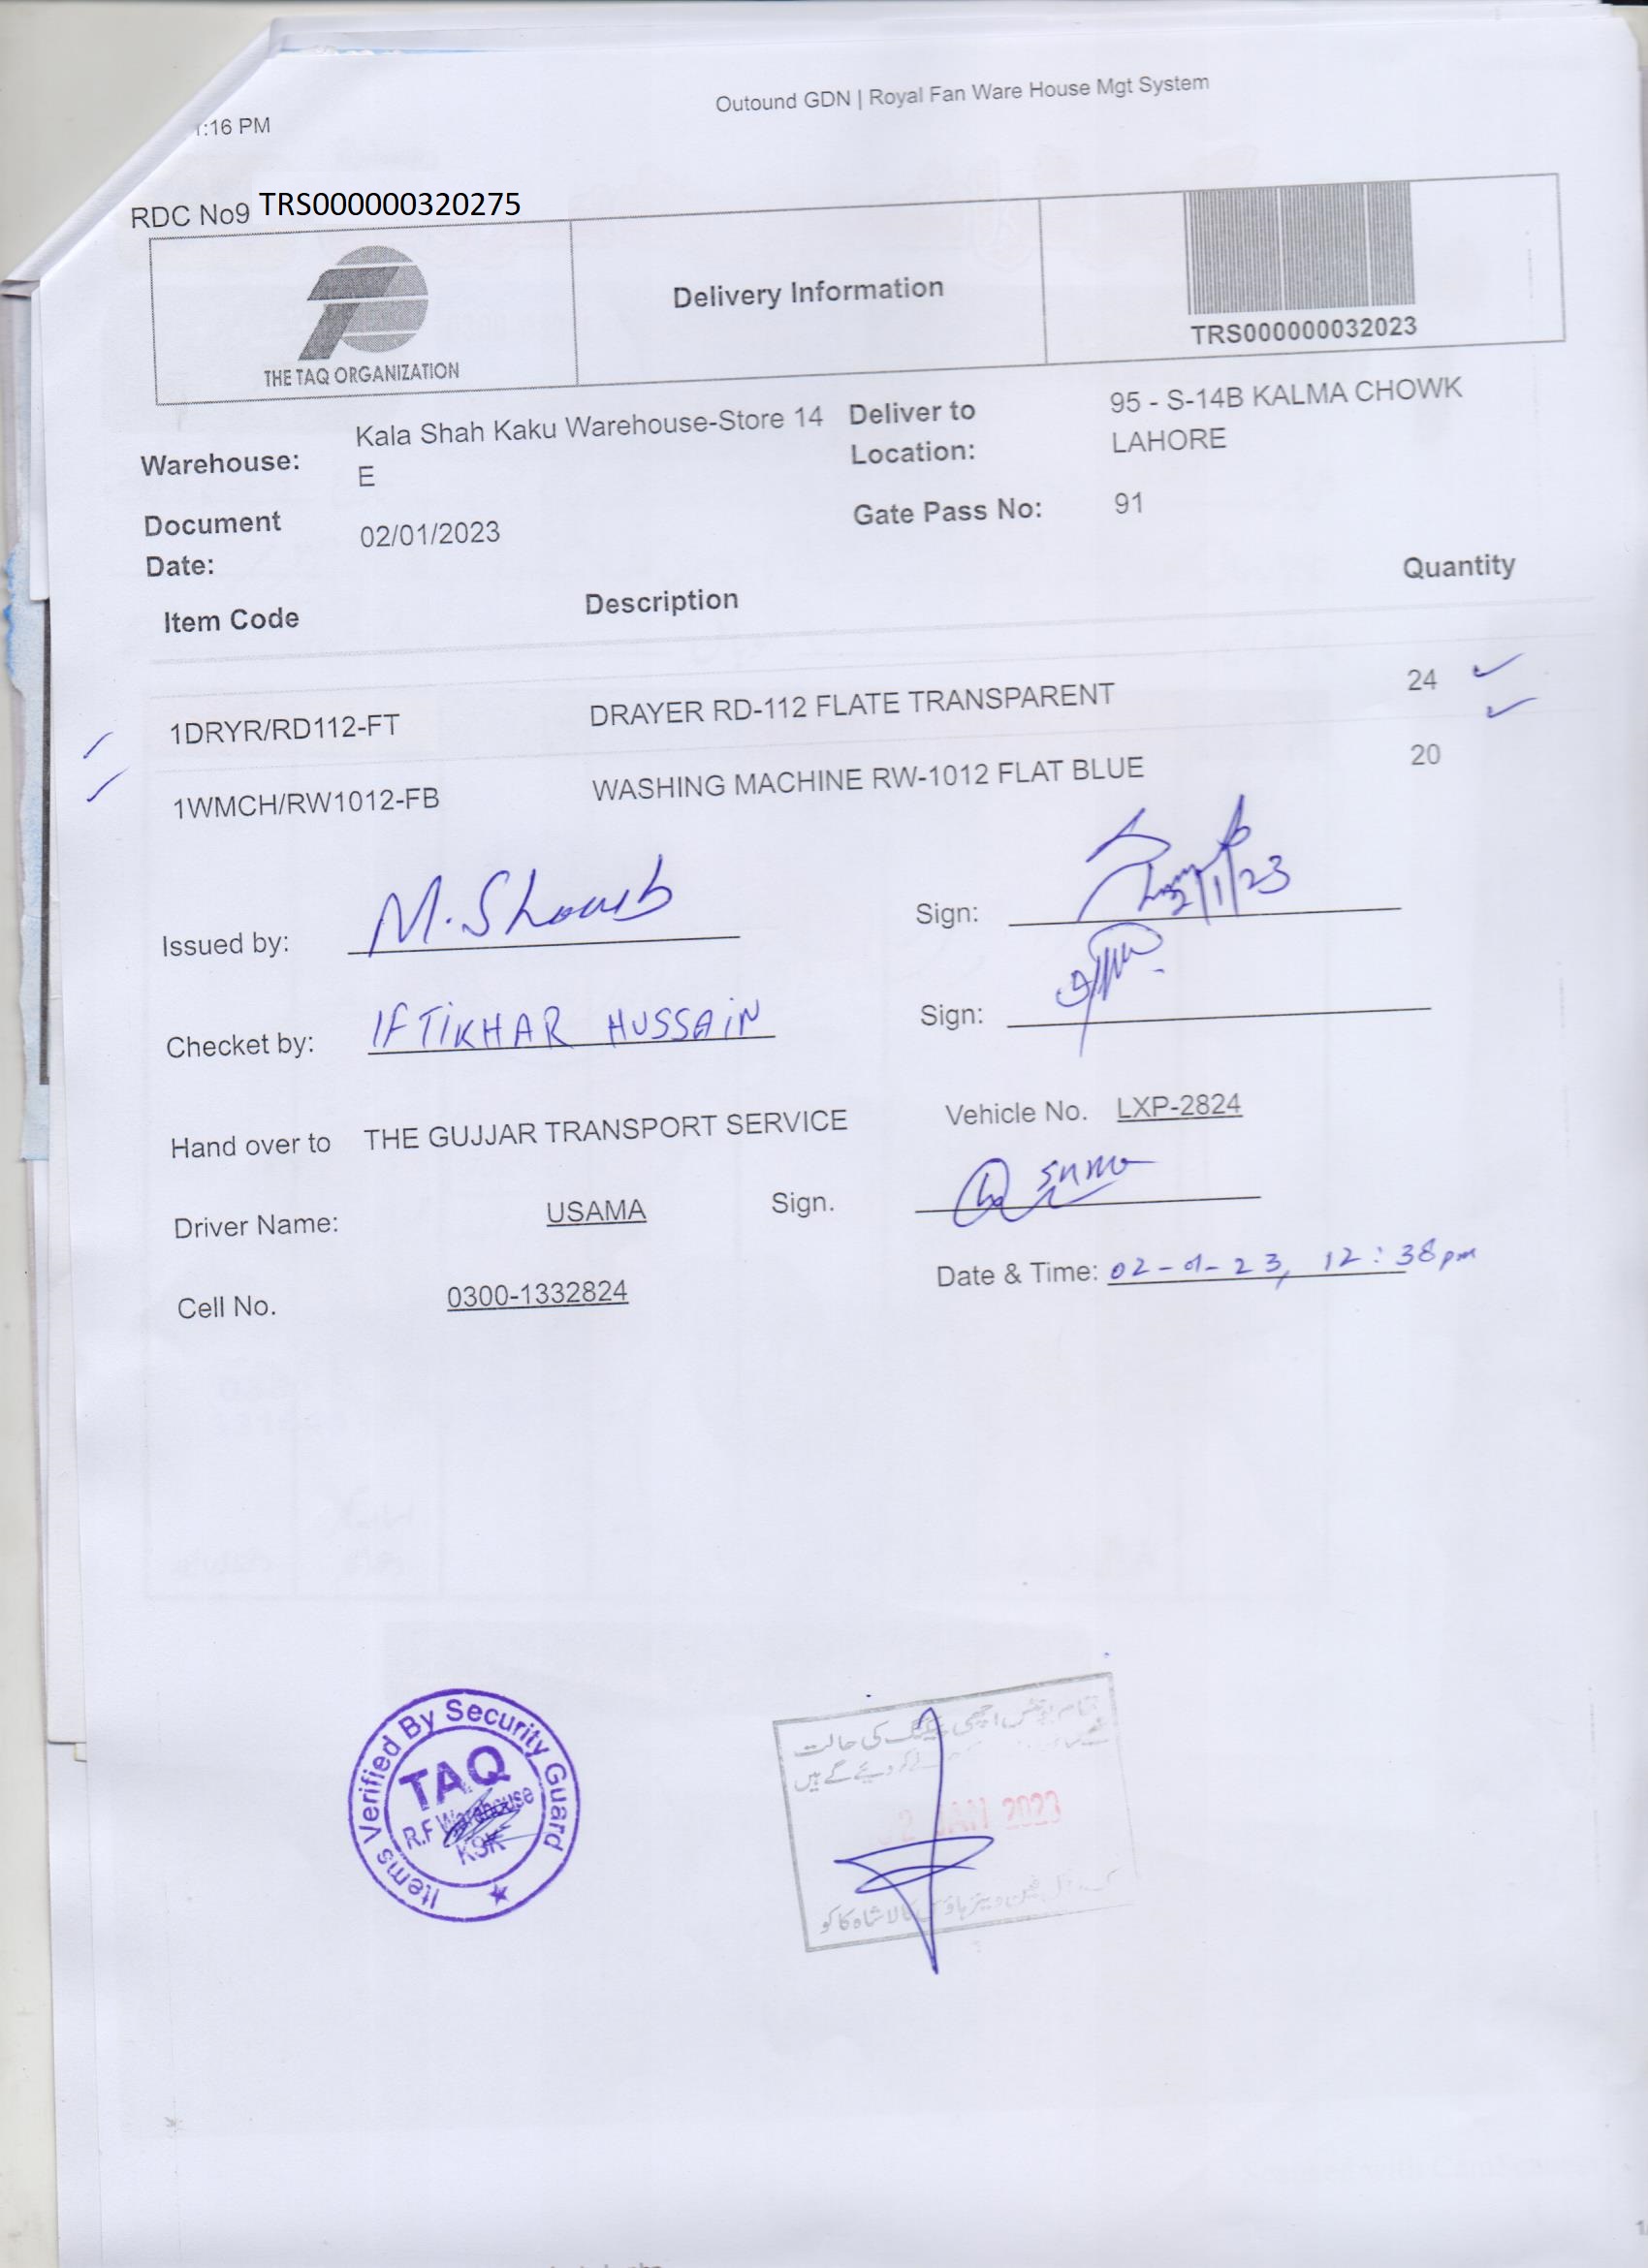 Outound GDN | Royal Fan Ware House Mgt System
:16 PM
RDC No9 TRS000000320275
THE TAQ ORGANIZATION
Delivery Information
TRS000000032023
Warehouse: Kala Shah Kaku Warehouse-Store 14 E
Deliver to Location: 95 - S-14B KALMA CHOWK LAHORE
Document Date: 02/01/2023
Gate Pass No: 91
Item Code Description Quantity
1DRYR/RD112-FT DRAYER RD-112 FLATE TRANSPARENT 24
1WMCH/RW1012-FB WASHING MACHINE RW-1012 FLAT BLUE 20
Issued by: M. Shoaib Sign: 2/1/23
Checket by: IFTIKHAR HUSSAIN Sign:
Hand over to THE GUJJAR TRANSPORT SERVICE Vehicle No. LXP-2824
Driver Name: USAMA Sign.
Cell No. 0300-1332824 Date & Time: 02-01-23, 12:38pm
Items Verified By Security Guard
TAQ
R.F Warehouse
KSK
اچھی پیکنگ کی حالت
دیئے گے ہیں
2 JAN 2023
کالا شاہ کاکو